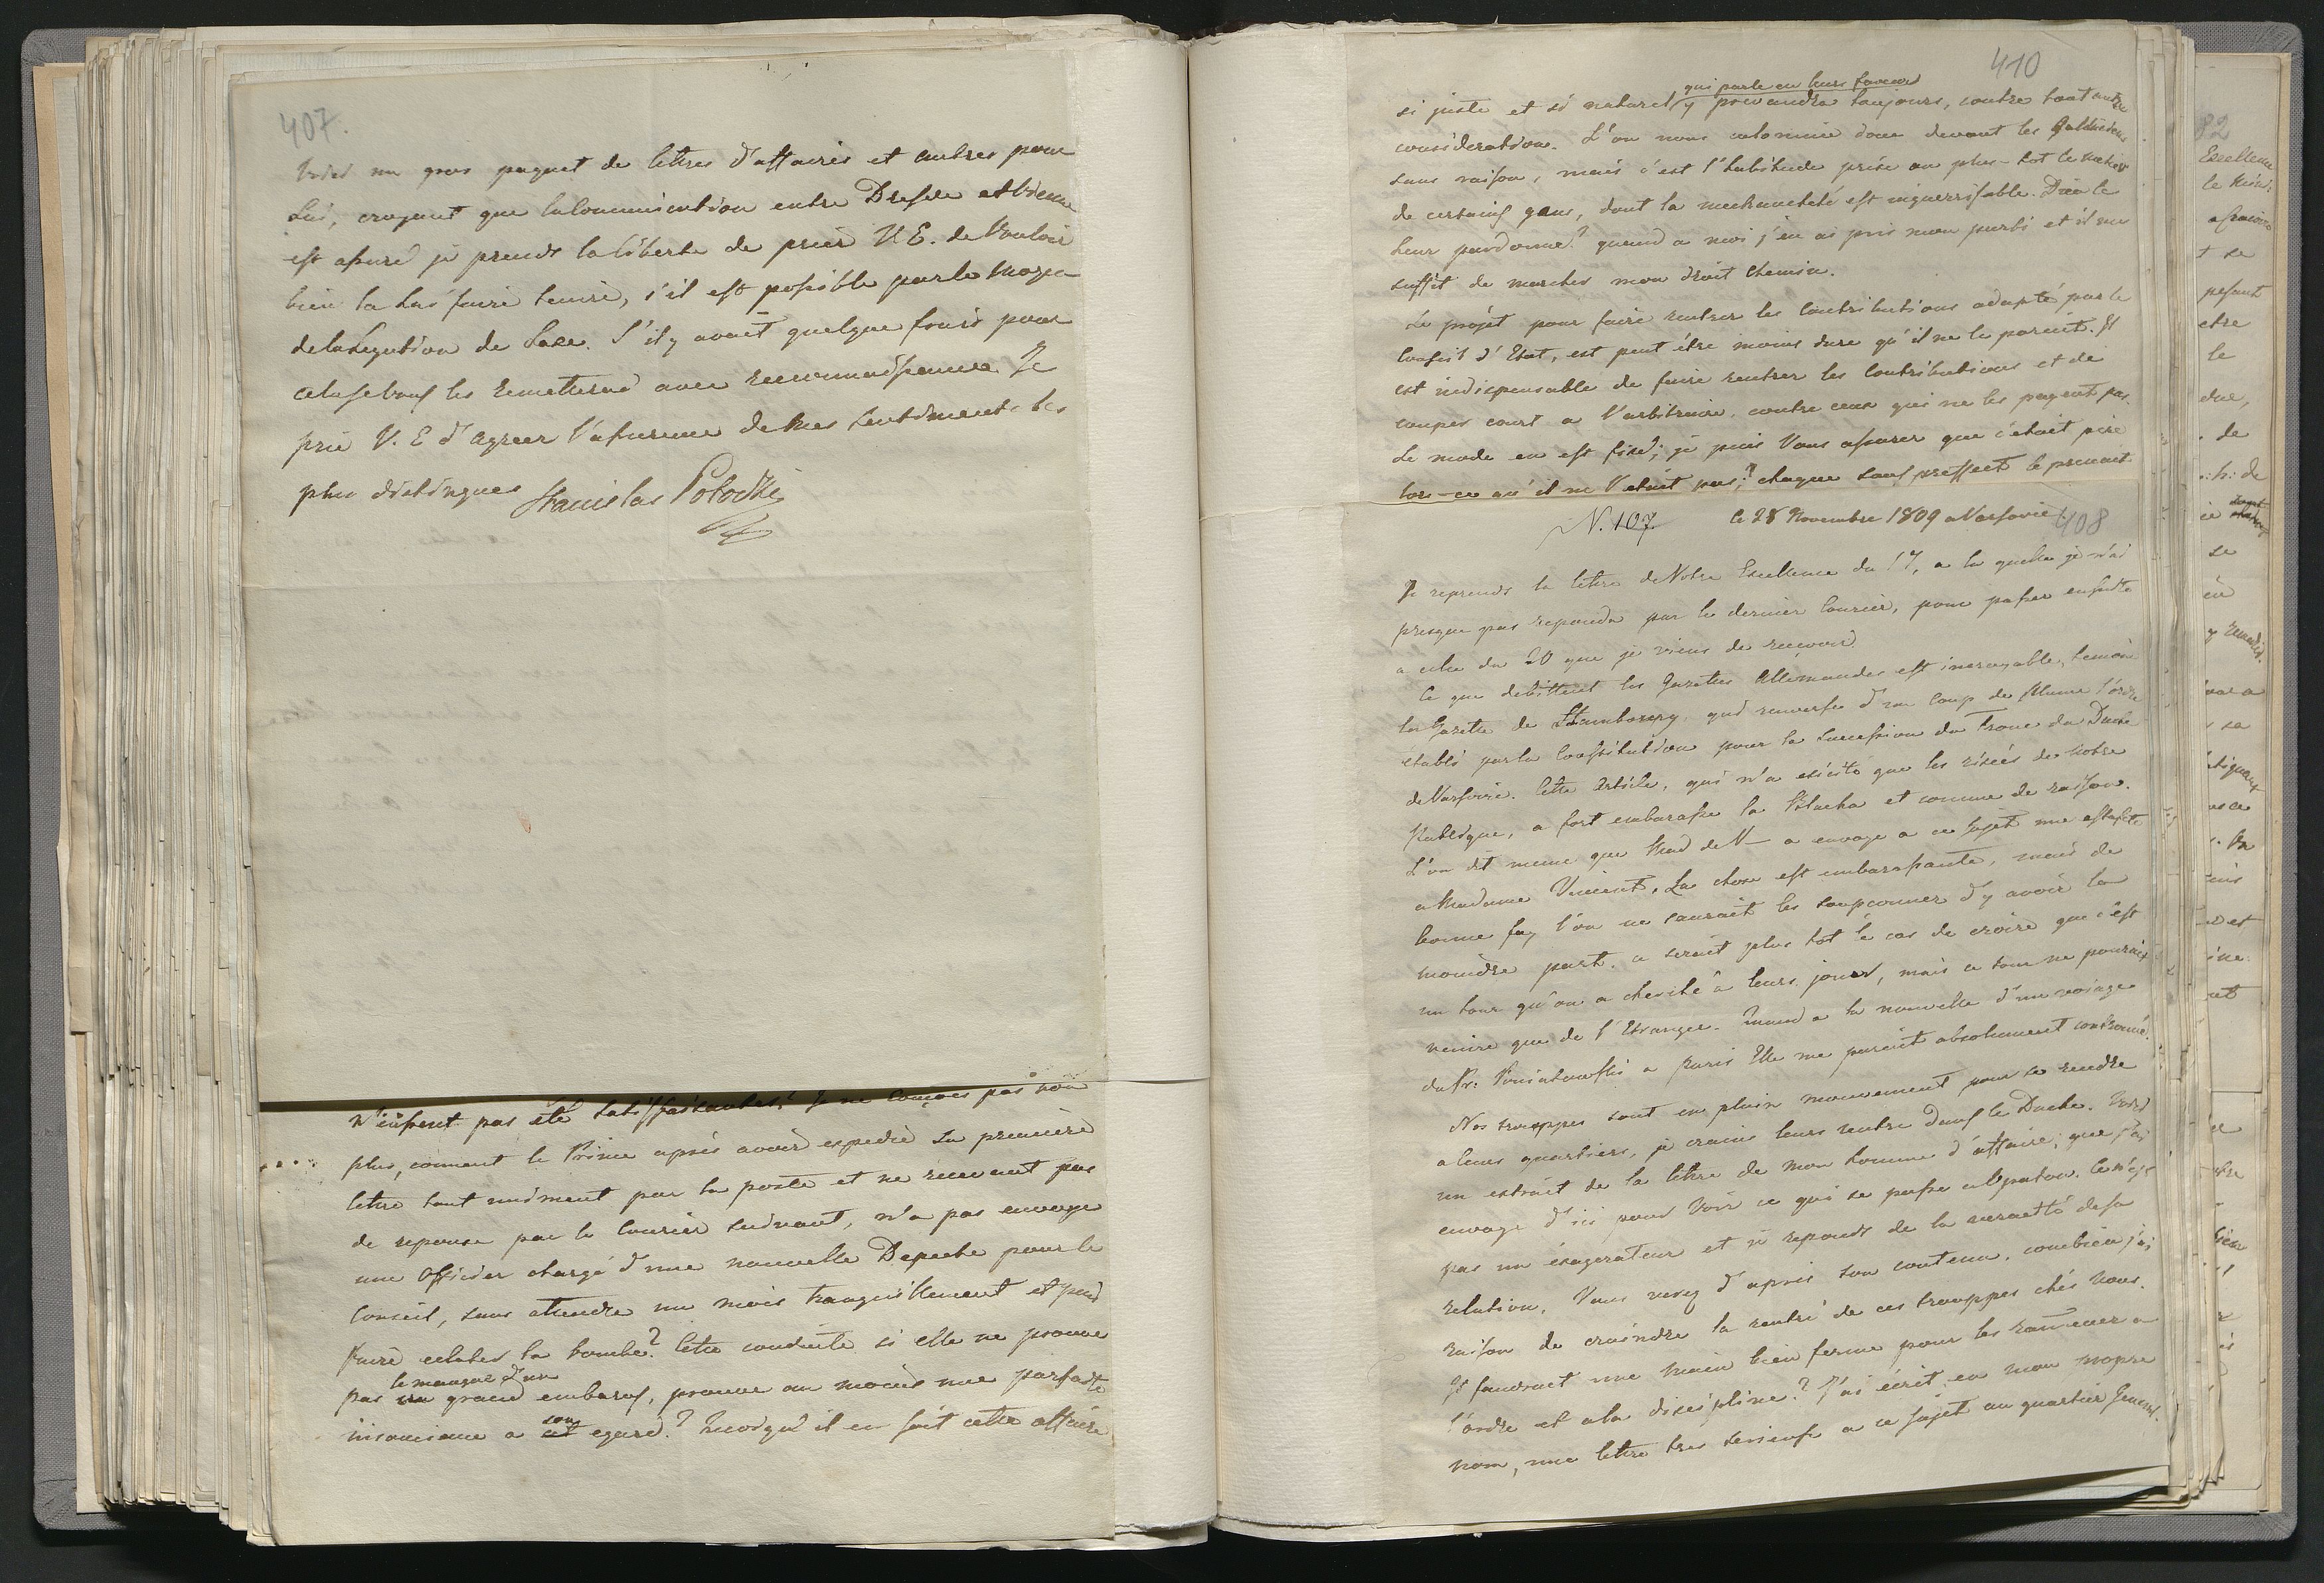 407.
Voici un gros paquet de lettres d'affaires et autres pour
Lui, croyant que la Communication entre Dresde et Vienne
est assuré je prends la liberte de prier V.E. de Vouloir
bien la Lui faire tenire, s'il est possible par le moyen
de la Legation de Saxe. S'il y avait quelque frais pour
cela je Vous les remetterai avec reconnaissance. Je
prie V. E d'agreer l'assurence de Mes Sentiments les
plus distingues Stanislas Potocki
N'eussent pas été satisfaisantes? Je ne Conçois pas non
plus, coment le Prince après avoir expedié sa première
lettre tout uniment par la poste et ne recevant pas
de reponse par le Courier suivant, n'a pas envoye
une Officier chargé d'une nouvelle Depeche pour le
Conseil, sans attendre un mois tranquillement et puis
faire eclater la bombe? Cette conduite si elle ne prouve
le manque d'un
pas un grand embaras, prouve au moins une parfaite
son
insouciance a cet egard? Quoiqu'il en soit cette affaire
410
qui parle en leurs faveur
si juste et si naturel y prevaudra toujours, contre tout autre
consideration. L'on nous calomnie donc devant les
sans raison, mais c'est l'habitude prise ou plus-tot le metier
de certains gens, dont la mechanceté est inguerrissable. Dieu le
leur pardonne? quand a moi j'en ai pris mon parti et il me
suffit de marcher mon droit chemin.
Le projet pour faire rentrer les Contributions adopté par le
Conseil d'Etat, est peut être moins dure qu'il ne le parait. Il
est indispensable de faire rentrer les Contributions et de
couper court a l'arbitraire, contre ceux qui ne les payent pas.
Le mode en est fixé; je puis Vous assurer que c'etait pire
lors-ce qu'il ne l'etait pas? chaque Sous prefect le prenait
N. 107. le 28 Novembre 1809 a Varsovie 408
Je reprends la lettre de Votre Excellence du 17, a la quelle je n'ai
presque pas repondu par le dernier Courier, pour passer ensuite
a celle du 20 que je viens de recevoir.
Ce que debittent les Gazettes Allemandes est incroyable, temoin
la Gazette de Hambourg, qui renverse d'un coup de plume l'ordre
etabli par la Constitution pour la Succession du Trone du Duché
de Varsovie. Cette Article, qui n'a exicité que les risées de Notre
Publique, a fort embarasse la Blacha et comme de raison.
L'on dit meme que Mad de V— a envoye a ce sujet une estafette
a Madame Vincent, La chose est embarassante, mais de
bonne foy l'on ne saurait les soupconner d'y avoir la
moindre part. ce serait plus tot le cas de croire que c'est
un tour qu'on a cherché à leurs jouer, mais ce tour ne pourait
venire que de l'Etranger. Quand a la nouvelle d'un voiage
du Pr: Poniatowski a Paris Elle me parait absolument
Nos trouppes sont en plain mouvement pour se rendre
a leurs quartiers, je crains leurs rentre dans le Duche. Voici
un extrait de la lettre de mon homme d'affaire, que j'ai
envoye d'ici pour Voir ce qui se passe a Opatow. Ce n'est
pas un exagerateur et je reponds de la veracité de sa
relation. Vous verez d'apres son contenu, combien j'ai
raison de craindre la rentré de ces trouppes chés nous.
Il faudrait une main bien ferme pour les ramener a
l'ordre et a la discipline? J'ai écrit, en mon propre
nom, une lettre tres serieuse a ce sujet au quartier General.
82
Excellence
le
t se
pesant
etre
le
due,
de
:h: de
se
se
et
et